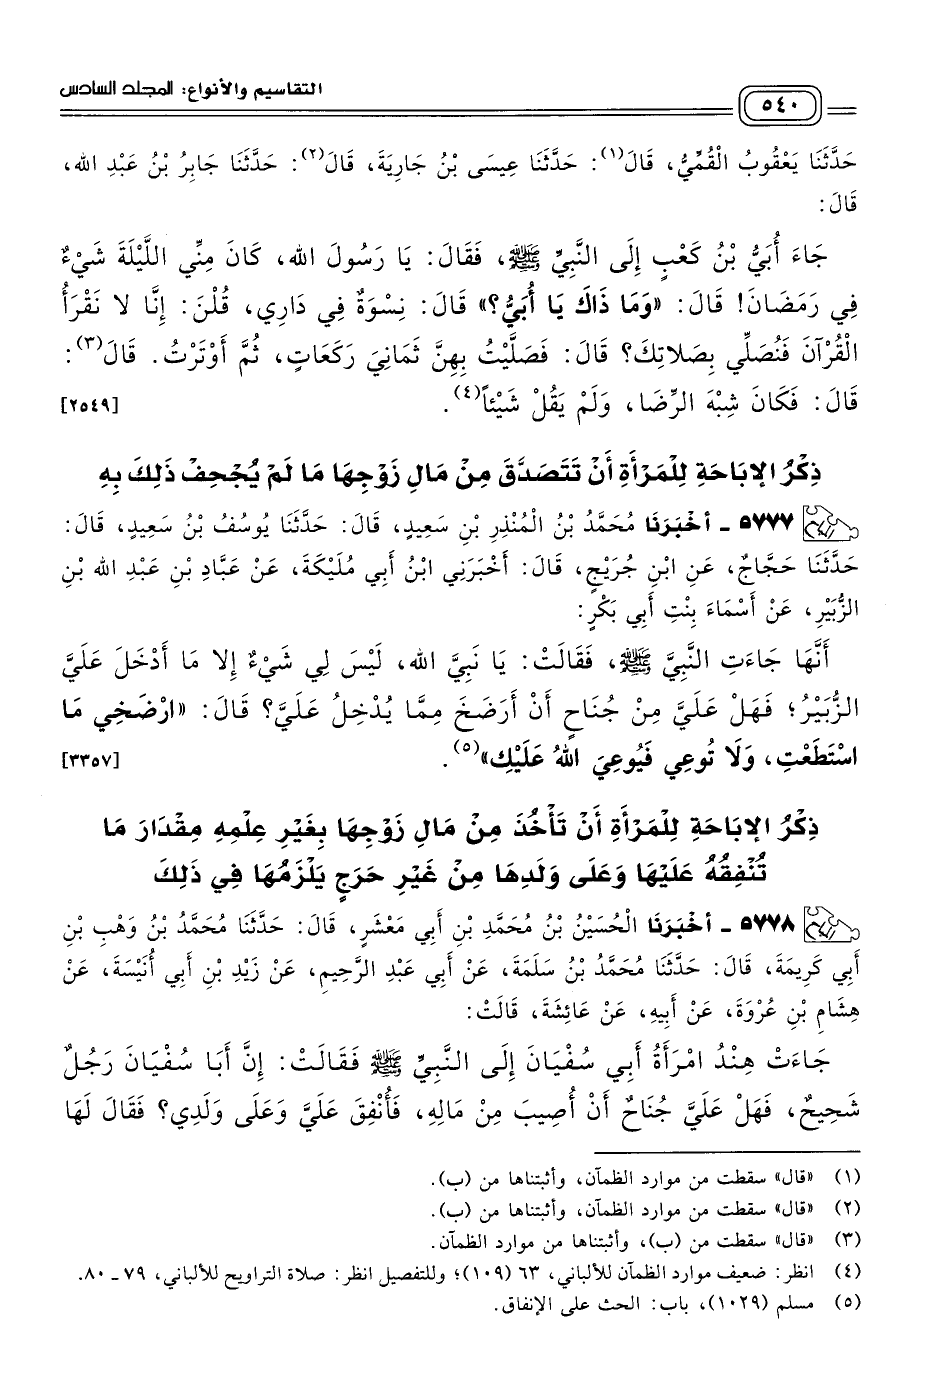 التقاسيم والأنواع: المجلد السادس
٥٤٠
حَدَّثَنَا يَعْقُوبُ الْقُمِّيُّ، قَالَ(١): حَدَّثَنَا عِيسَى بْنُ جَارِيَةَ، قَالَ(٢): حَدَّثَنَا جَابِرُ بْنُ عَبْدِ الله،
قَالَ:
جَاءَ أُبَيُّ بْنُ كَعْبٍ إِلَى النَّبِيِّ ﷺ، فَقَالَ: يَا رَسُولَ الله، كَانَ مِنِّي اللَّيْلَةَ شَيْءٌ
فِي رَمَضَانَ! قَالَ: «وَمَا ذَاكَ يَا أُبَيُّ؟» قَالَ: نِسْوَةٌ فِي دَارِي، قُلْنَ: إِنَّا لا نَقْرَأُ
الْقُرْآنَ فَنُصَلِّي بِصَلاتِكَ؟ قَالَ: فَصَلَّيْتُ بِهِنَّ ثَمَانِيَ رَكَعَاتٍ، ثُمَّ أَوْتَرْتُ. قَالَ(٣):
قَالَ: فَكَانَ شِبْهَ الرِّضَا، وَلَمْ يَقُلْ شَيْئاً(٤). [٢٥٤٩]
ذِكْرُ الإِبَاحَةِ لِلْمَرْأَةِ أَنْ تَتَصَدَّقَ مِنْ مَالِ زَوْجِهَا مَا لَمْ يُجْحِفْ ذَلِكَ بِهِ
٥٧٧٧ - أخْبَرَنَا مُحَمَّدُ بْنُ الْمُنْذِرِ بْنِ سَعِيدٍ، قَالَ: حَدَّثَنَا يُوسُفُ بْنُ سَعِيدٍ، قَالَ:
حَدَّثَنَا حَجَّاجٌ، عَنِ ابْنِ جُرَيْجٍ، قَالَ: أَخْبَرَنِي ابْنُ أَبِي مُلَيْكَةَ، عَنْ عَبَّادِ بْنِ عَبْدِ الله بْنِ
الزُّبَيْرِ، عَنْ أَسْمَاءَ بِنْتِ أَبِي بَكْرٍ:
أَنَّهَا جَاءَتِ النَّبِيَّ ﷺ، فَقَالَتْ: يَا نَبِيَّ الله، لَيْسَ لِي شَيْءٌ إِلا مَا أَدْخَلَ عَلَيَّ
الزُّبَيْرُ؛ فَهَلْ عَلَيَّ مِنْ جُنَاحٍ أَنْ أَرْضَخَ مِمَّا يُدْخِلُ عَلَيَّ؟ قَالَ: «ارْضَخِي مَا
اسْتَطَعْتِ، وَلَا تُوعِي فَيُوعِيَ اللهُ عَلَيْكِ»(٥). [٣٣٥٧]
ذِكْرُ الإِبَاحَةِ لِلْمَرْأَةِ أَنْ تَأْخُذَ مِنْ مَالِ زَوْجِهَا بِغَيْرِ عِلْمِهِ مِقْدَارَ مَا
تُنْفِقُهُ عَلَيْهَا وَعَلَى وَلَدِهَا مِنْ غَيْرِ حَرَجٍ يَلْزَمُهَا فِي ذَلِكَ
٥٧٧٨ - أخْبَرَنَا الْحُسَيْنُ بْنُ مُحَمَّدِ بْنِ أَبِي مَعْشَرٍ، قَالَ: حَدَّثَنَا مُحَمَّدُ بْنُ وَهْبِ بْنِ
أَبِي كَرِيمَةَ، قَالَ: حَدَّثَنَا مُحَمَّدُ بْنُ سَلَمَةَ، عَنْ أَبِي عَبْدِ الرَّحِيمِ، عَنْ زَيْدِ بْنِ أَبِي أُنَيْسَةَ، عَنْ
هِشَامِ بْنِ عُرْوَةَ، عَنْ أَبِيهِ، عَنْ عَائِشَةَ، قَالَتْ:
جَاءَتْ هِنْدُ امْرَأَةُ أَبِي سُفْيَانَ إِلَى النَّبِيِّ ﷺ فَقَالَتْ: إِنَّ أَبَا سُفْيَانَ رَجُلٌ
شَحِيحٌ، فَهَلْ عَلَيَّ جُنَاحٌ أَنْ أُصِيبَ مِنْ مَالِهِ، فَأُنْفِقَ عَلَيَّ وَعَلَى وَلَدِي؟ فَقَالَ لَهَا
(١) «قال» سقطت من موارد الظمآن، وأثبتناها من (ب).
(٢) «قال» سقطت من موارد الظمآن، وأثبتناها من (ب).
(٣) «قال» سقطت من (ب)، وأثبتناها من موارد الظمآن.
(٤) انظر: ضعيف موارد الظمآن للألباني، ٦٣ (١٠٩)؛ وللتفصيل انظر: صلاة التراويح للألباني، ٧٩ - ٨٠.
(٥) مسلم (١٠٢٩)، باب: الحث على الإنفاق.